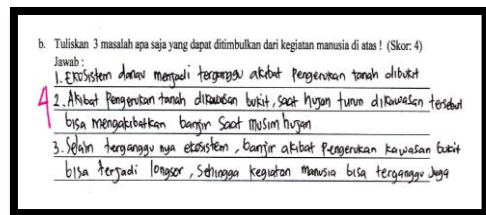 b. Tuliskan 3 masalah apa saja yang dapat ditimbulkan dari kegiatan manusia di atas ! (Skor: 4)
Jawab :
1. Ekosistem danau menjadi terganggu akibat pengerukan tanah dibukit
4
2. Akibat Pengerukan tanah dikawasan bukit, saat hujan turun dikawasan tersebut
bisa mengakibatkan banjir saat musim hujan
3. Selain terganggu nya ekosistem, banjir akibat Pengerukan kawasan bukit
bisa terjadi longsor, sehingga kegiatan manusia bisa terganggu Juga